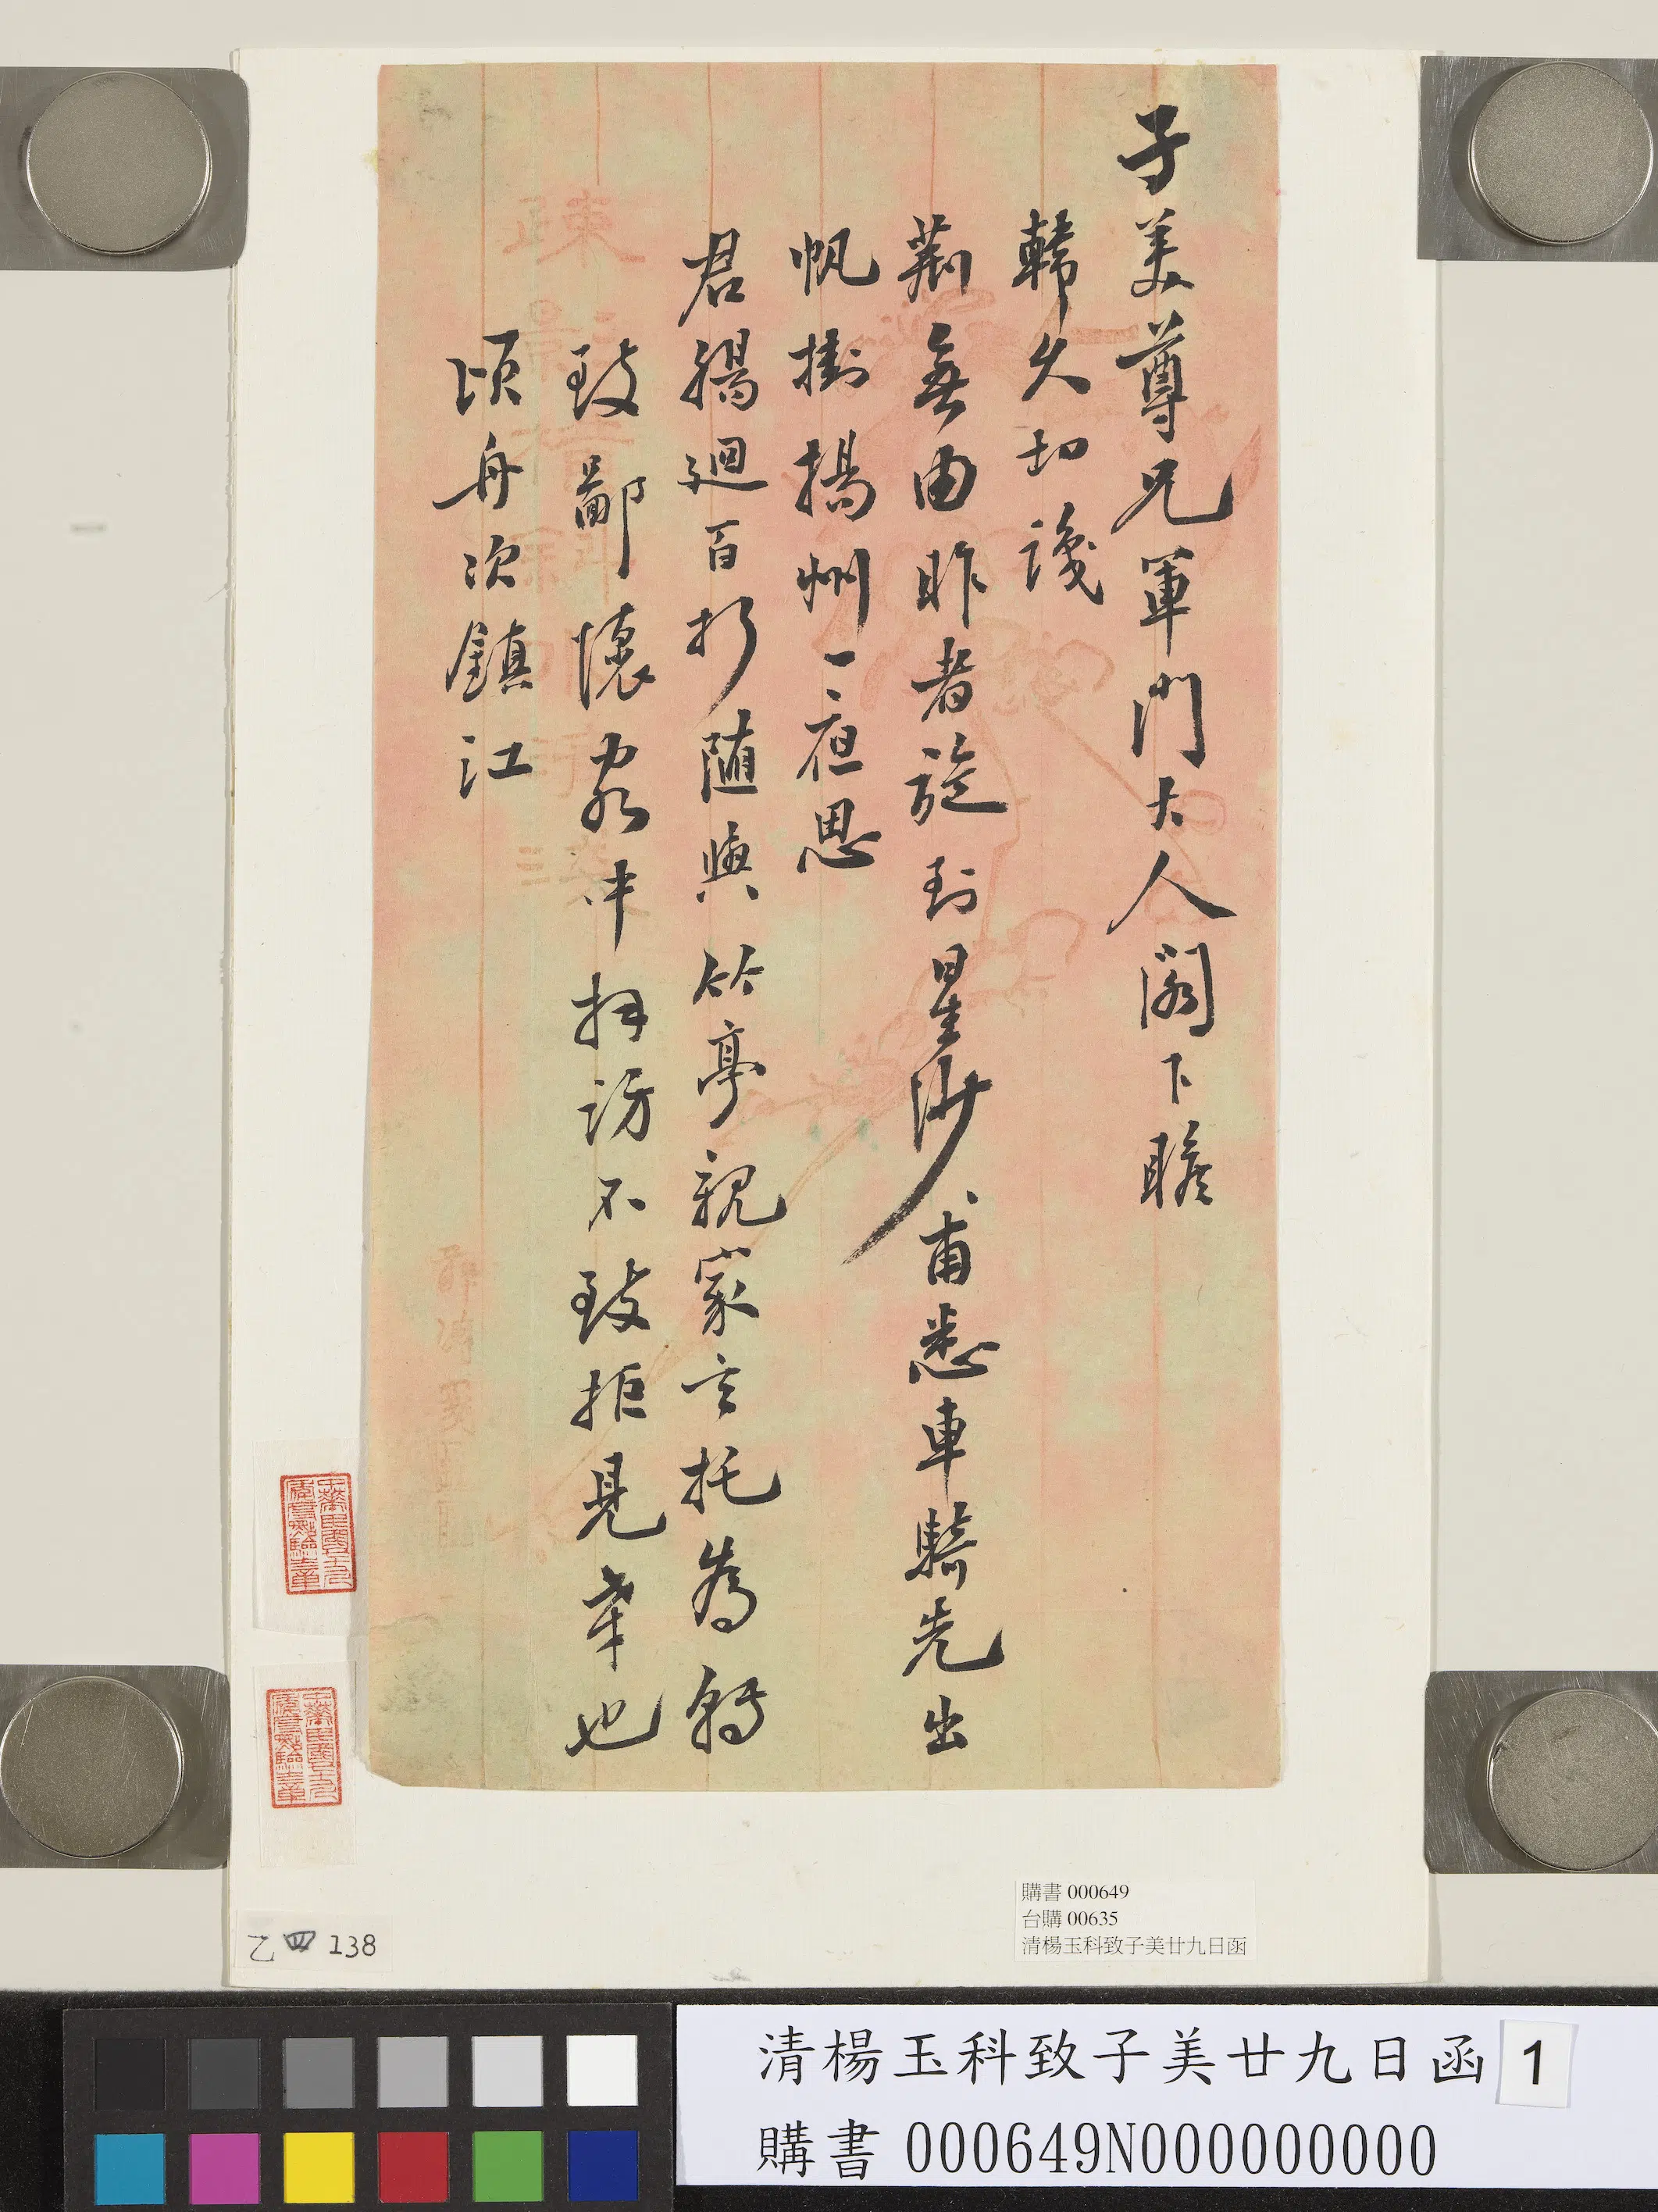 子美尊兄軍門大人閣下瞻
韓久切識
荊無由昨者旋到星沙甫悉車騎先出
帆掛揚州一夜思
君腸迴百折随與竹亭親家言托為轉
致鄙懷容中拜訪不致拒見幸也
頃舟次鎮江
乙四138
購書 000649
台購 00635
清楊玉科致子美廿九日函
清楊玉科致子美廿九日函 1
購書 000649N000000000